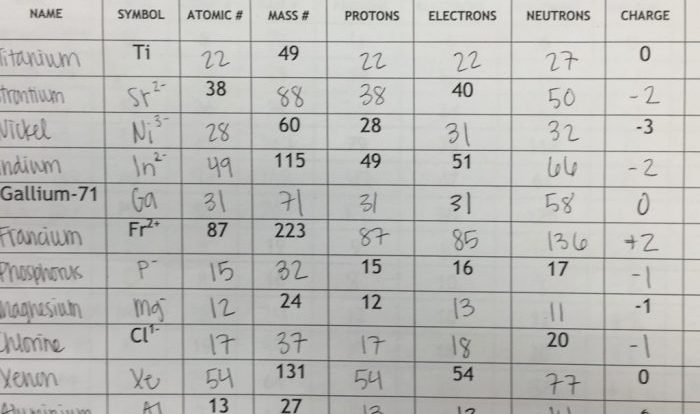 NAME SYMBOL ATOMIC # MASS # PROTONS ELECTRONS NEUTRONS CHARGE
Titanium Ti 22 49 22 22 27 0
trontium Sr²⁻ 38 88 38 40 50 -2
Nickel Ni³⁻ 28 60 28 31 32 -3
ndium In²⁻ 49 115 49 51 66 -2
Gallium-71 Ga 31 71 31 31 58 0
Francium Fr²⁺ 87 223 87 85 136 +2
Phosphorus P⁻ 15 32 15 16 17 -1
Magnesium Mg⁻ 12 24 12 13 11 -1
Chlorine Cl¹⁻ 17 37 17 18 20 -1
Xenon Xe 54 131 54 54 77 0
Al 13 27 13